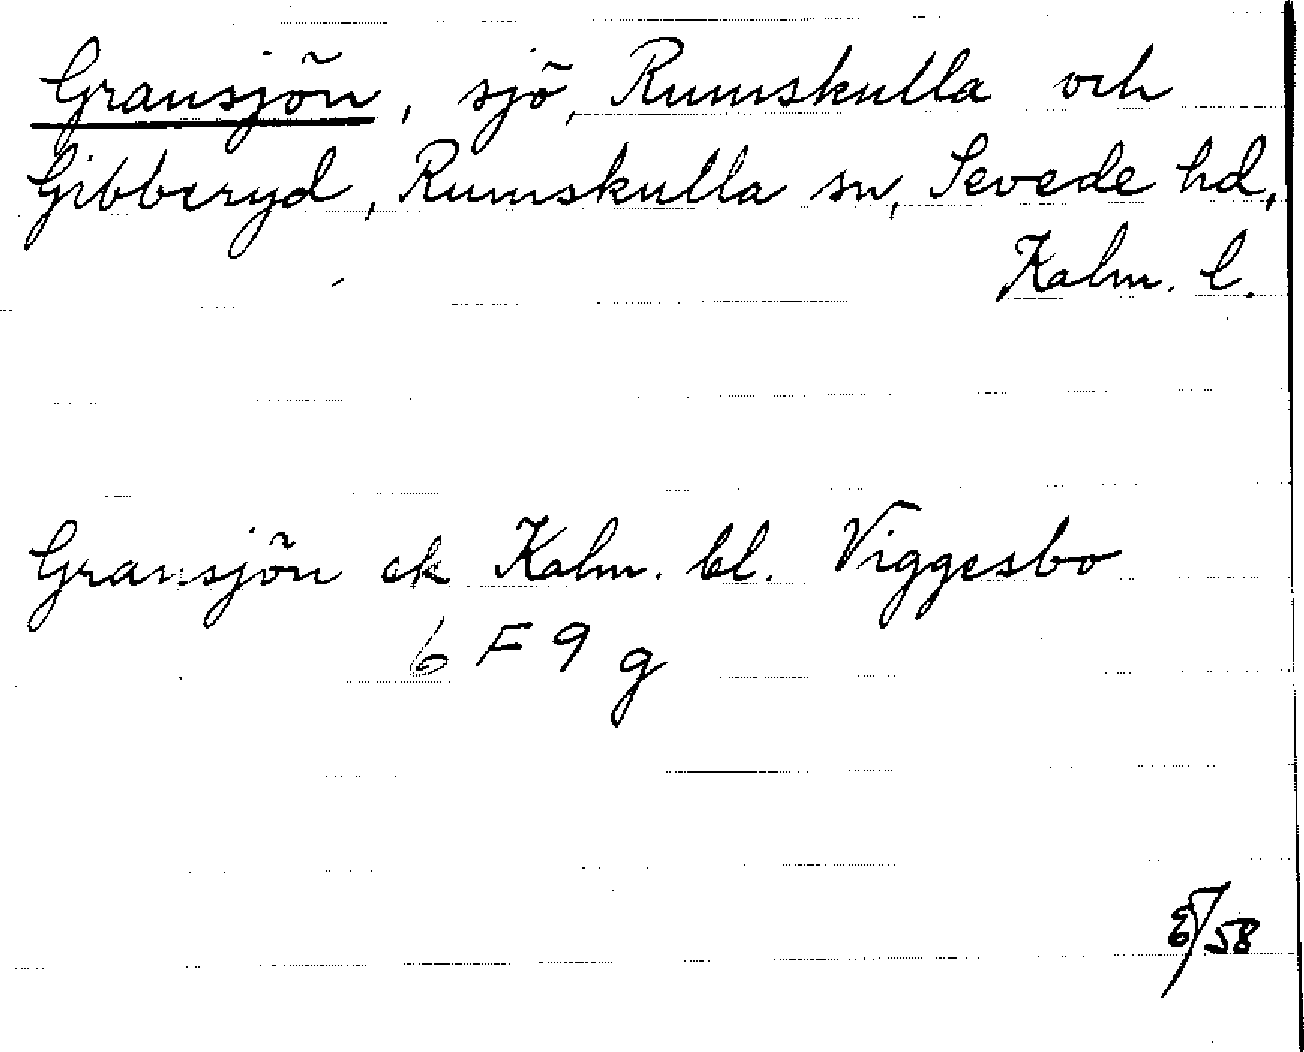 Gransjön, sjö, Rumskulla och
Gibberyd, Rumskulla sn, Sevede hd,
Kalm. l.
Gransjön ek Kalm. bl. Viggesbo
6 F 9 g
58